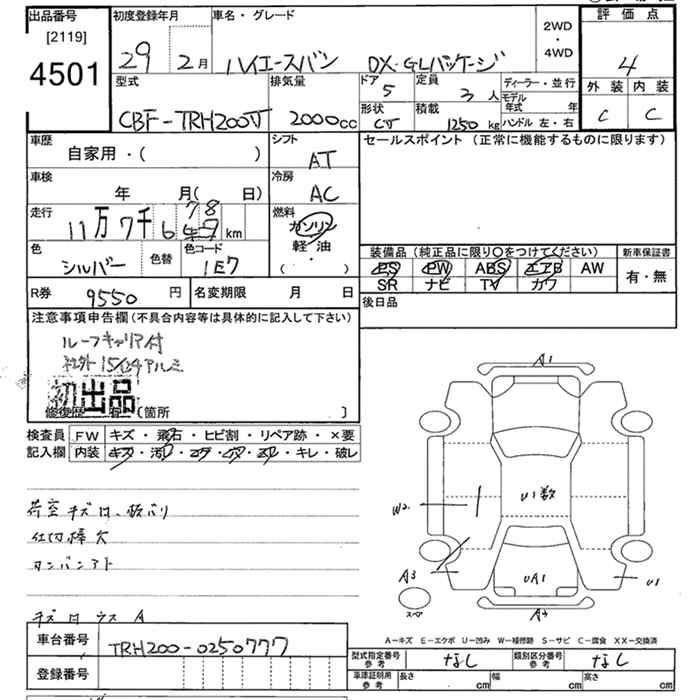 出品番号
[2119]
4501
初度登録年月
29 2月
車名・グレード
ハイエースバン DX・GLパッケージ
2WD
・
4WD
評価点
4
外装 内装
C C
型式
CBF-TRH200V
排気量
2000cc
ドア
5
定員
3人
ディーラー・並行
モデル年式 年
ハンドル 左・右
形状
CV
積載
1250kg
車歴
自家用・( )
シフト
AT
セールスポイント (正常に機能するものに限ります)
車検
年 月( 日)
冷房
AC
走行
11万7千678km
燃料
ガソリン
軽・油
・
( )
色
シルバー
色替
色コード
1E7
装備品 (純正品に限り〇をつけてください)
PS PW ABS エアB AW
SR ナビ TV カワ
新車保証書
有・無
R券
9550円
名変期限 月 日
後日品
注意事項申告欄(不具合内容等は具体的に記入して下さい)
ルーフキャリア付
社外15/124アルミ
初出品
修復歴 有 [箇所 ]
検査員
記入欄
FW キズ・飛石・ヒビ割・リペア跡・×要
内装 キズ・汚・コゲ・・・キレ・破レ
荷室キズ
仕切棒欠
コンパンアト
A1
U1数
W2
A3
UA1
U1
スペア
A-キズ E-エクボ U-凹み W-補修跡 S-サビ C-腐食 XX-交換済
車台番号
TRH200-0250777
登録番号
型式指定番号
参考
なし
類別区分番号
参考
なし
車庫証明用
参考
長さ cm
幅 cm
高さ cm